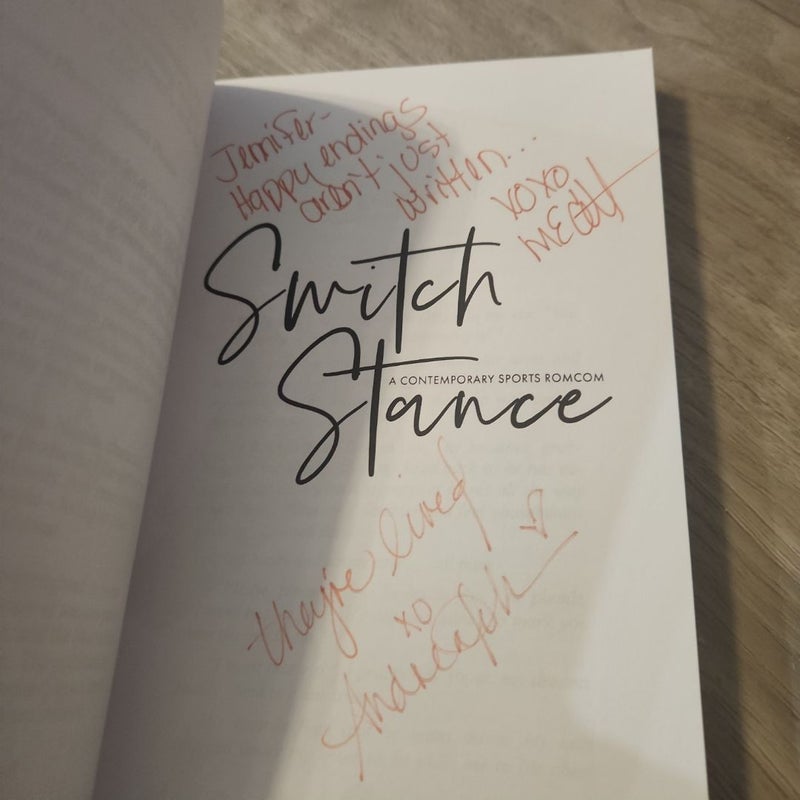 Jennifer-
Happy endings
aren't just
written...
xoxo
Switch
Stance
A CONTEMPORARY SPORTS ROMCOM
they're lived
xo